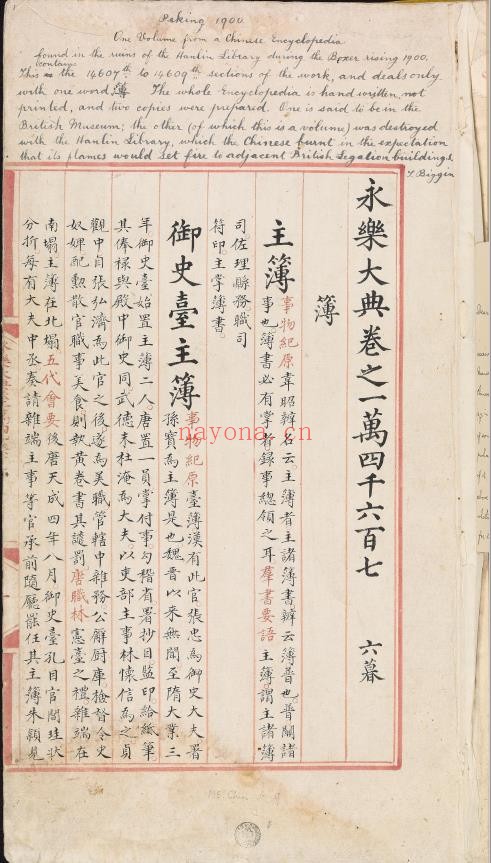 Peking 1900
One Volume from a Chinese Encyclopedia
found in the ruins of the Hanlin Library during the Boxer rising 1900.
This contains the 14607th to 14609th sections of the work, and deals only
with one word 簿 The whole Encyclopedia is hand written, not
printed, and two copies were prepared. One is said to be in the
British Museum; the other (of which this is a volume) was destroyed
with the Hanlin Library, which the Chinese burnt in the expectation
that its flames would set fire to adjacent British Legation buildings.
T. Biggin
永樂大典卷之一萬四千六百七 六暮
簿
主簿
事物紀原韋昭辯名云主簿者主諸簿書辯云簿普也普關諸
事也簿書必有掌者錄事總領之耳羣書要語主簿謂主諸簿
司佐理縣務職司
符印主掌簿書
御史臺主簿
事物紀原臺簿漢有此官張忠為御史大夫署
孫寶為主簿是也魏晉以來無聞至隋大業三
年御史臺始置主簿二人唐置一員掌付事勾稽省署抄目監印給紙筆
其俸祿與殿中御史同武德末杜淹為大夫以吏部主事林懷信為之貞
觀中自張弘濟為此官之後遂為美職管轄中雜務公廨厨庫檢督令史
奴婢配勳散官職事美食則執黃卷書其譴罰唐職林憲臺之禮雜端在
南塌主簿在北塌五代會要後唐天成四年八月御史臺孔目官閻珪狀
分折每有大夫中丞奏請雜端主事等官承前隨廳罷任其主簿朱穎見
nayona.cn